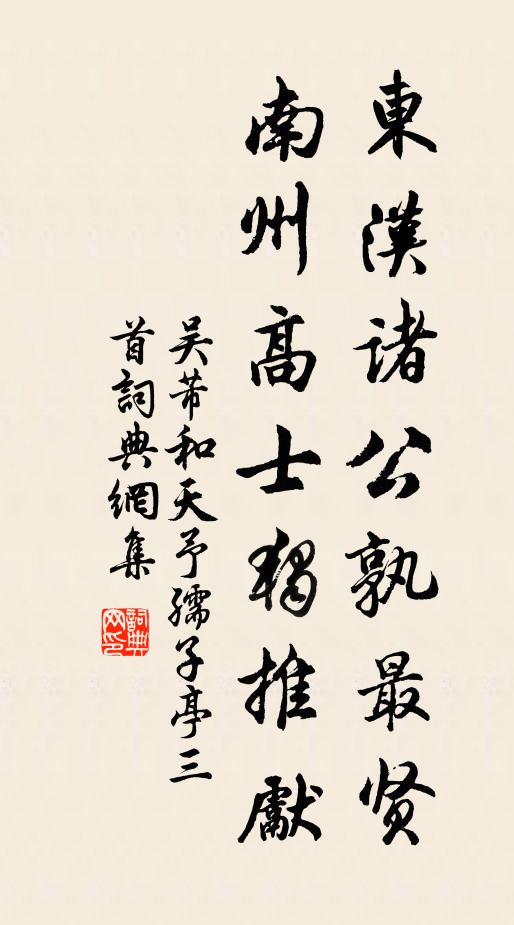 東漢諸公孰最贤
南州高士獨推獻
吴芾和天予孺子亭三
首詞典網集
詞典
网印